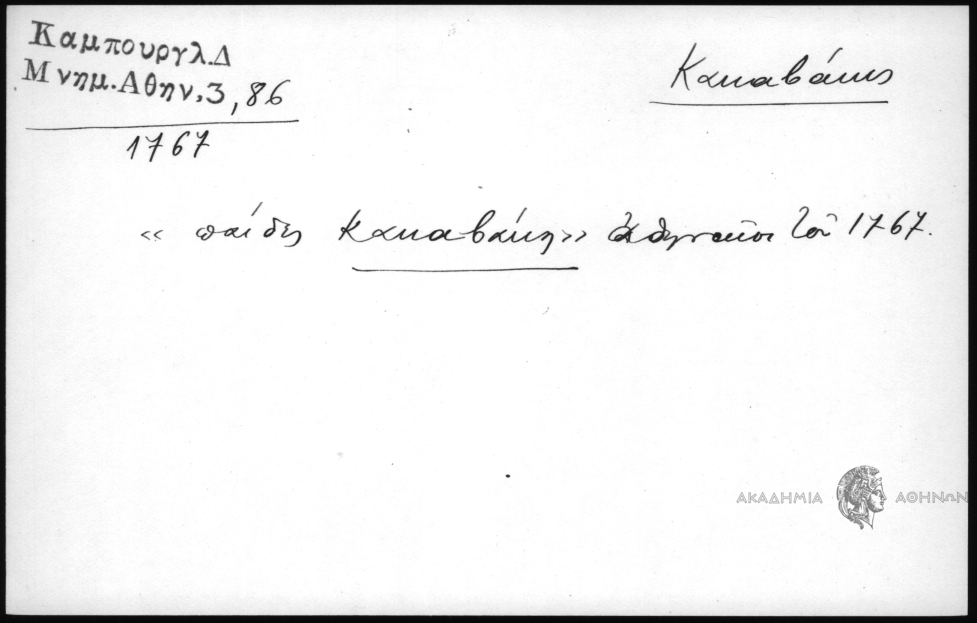 Καμπουργλ.Δ
Μνημ.Αθην,3,86
1767
Κακαβάκης
« παίδες Κακαβάκη» Ἀθηναῖοι τοῦ 1767.
ΑΚΑΔΗΜΙΑ ΑΘΗΝΩΝ